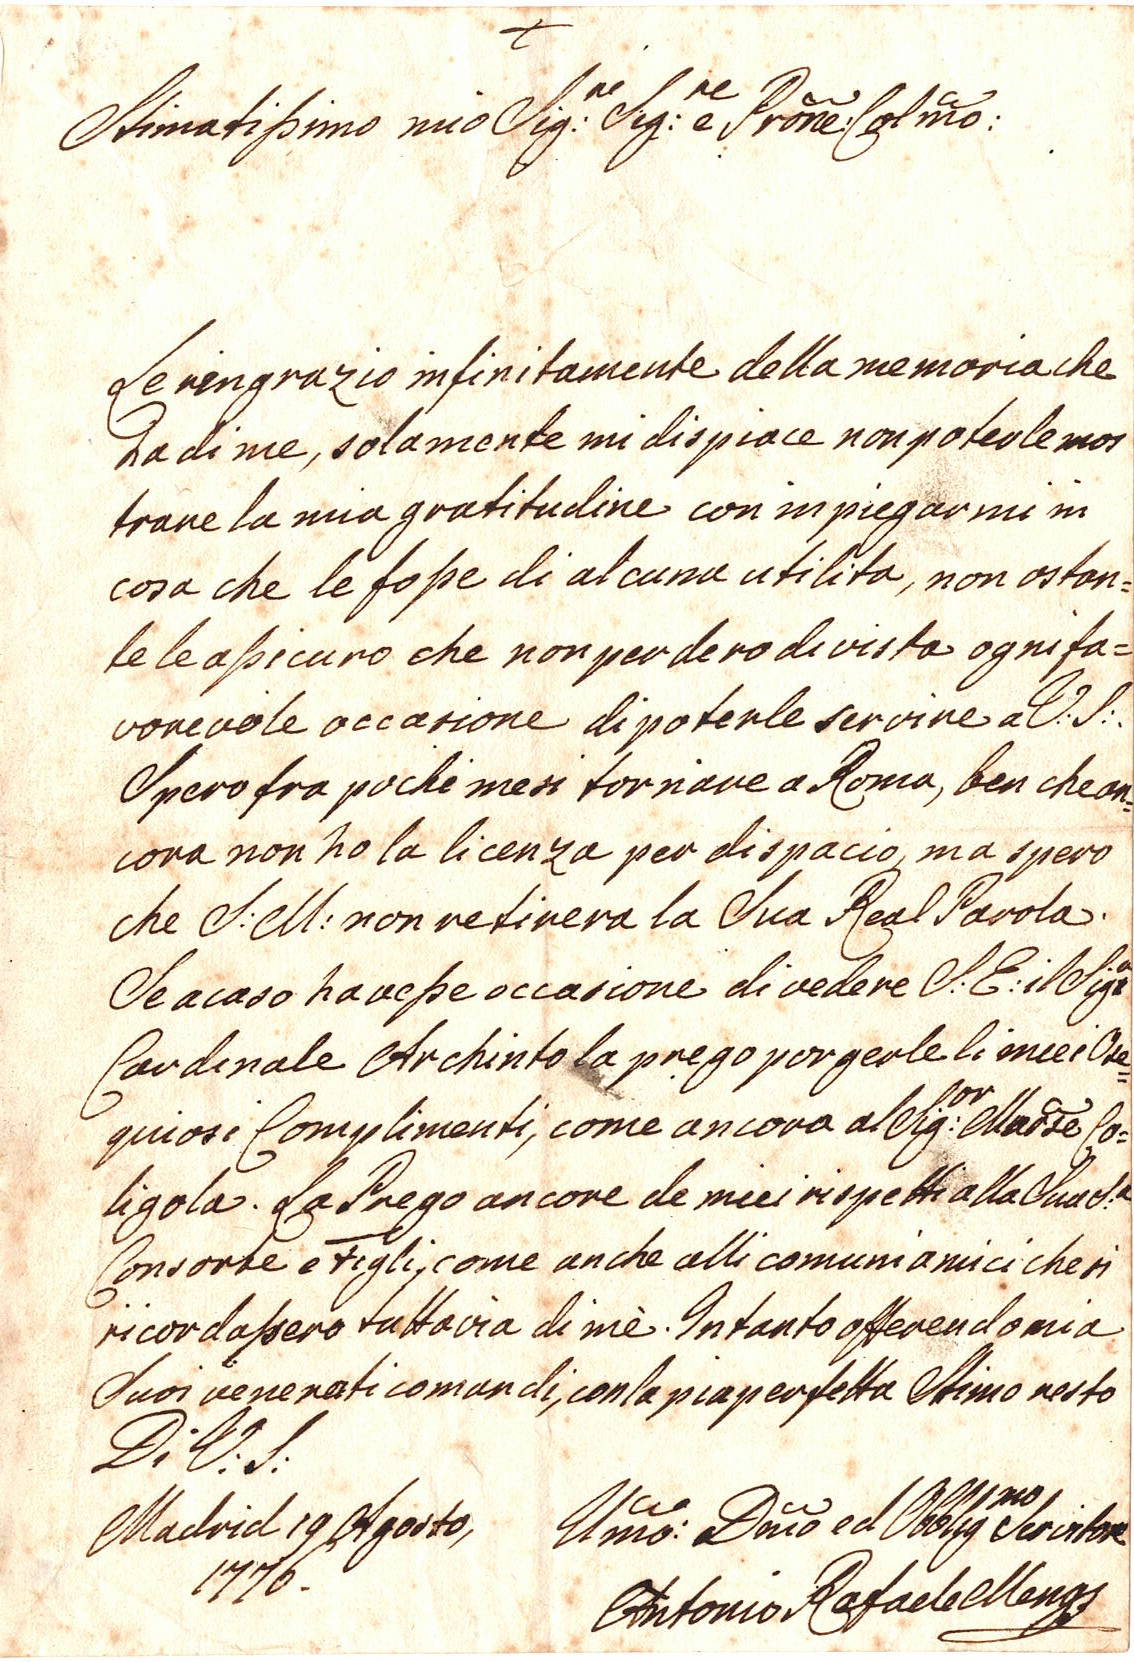 +
Stimatissimo mio Sig:re Sig:re e Prõne: Colmõ:
Le ringrazio infinitamente della memoria che
ha di me, solamente mi dispiace non poterle mos
trare la mia gratitudine con inpiegarmi in
cosa che le fosse di alcuna utilita, non ostan=
te le assicuro che non perdero di vista ogni fa=
vorevole occasione di poterle servire a V: S:.
Spero fra pochi mesi tornare a Roma, ben che an=
cora non ho la licenza per dispacio, ma spero
che S: M: non retirera la Sua Real Parola.
Se acaso havesse occasione di vedere S: E: il Sigr
Cardinale Archinto la prego porgerle li miei Ose=
quiosi Complimenti, come ancora al Sig:or Co=
ligola. La Prego ancore de miei rispetti alla Sua S.a
Consorte e Figli, come anche alli comuni amici che si
ricordassero tuttavia di mè. Intanto offerendomi a
Suoi venerati comandi, con la piu perfetta Stimo resto
Di V: S:
Madrid 19 Agosto,
1776.
Umõ: Dmõ ed Obbligmo Servitore
Antonio Rafaele Mengs